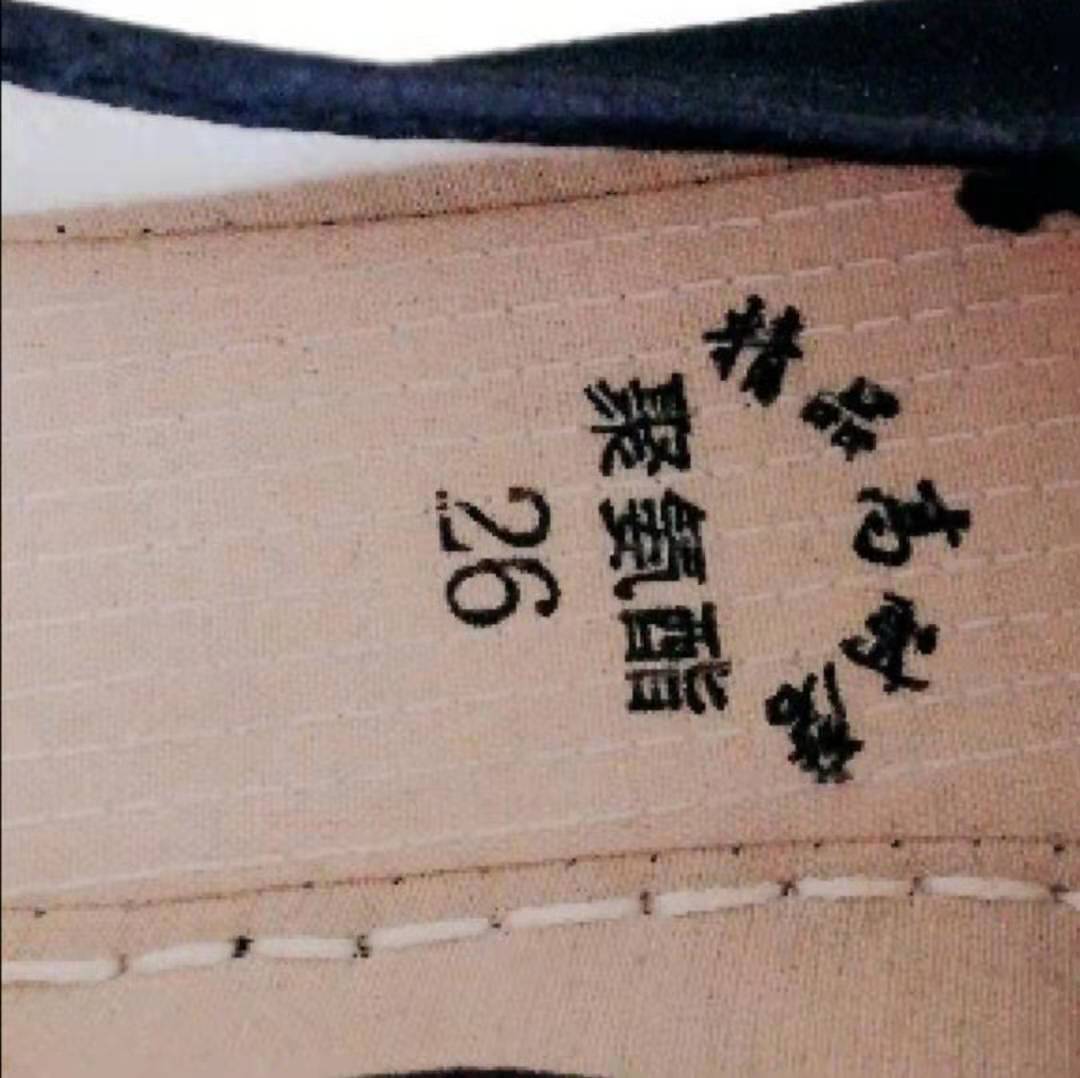 精品高耐磨
聚氨酯
26